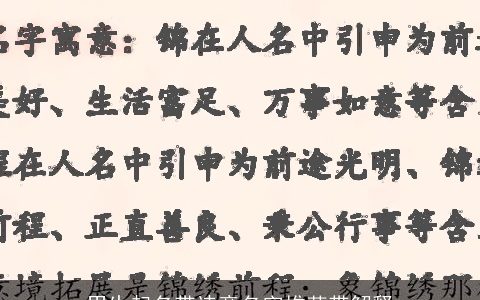 名字寓意：锦在人名中引申为前
美好、生活富足、万事如意等含
程在人名中引申为前途光明、锦
前程、正直善良、秉公行事等含
意境拓展是锦绣前程：象锦绣那